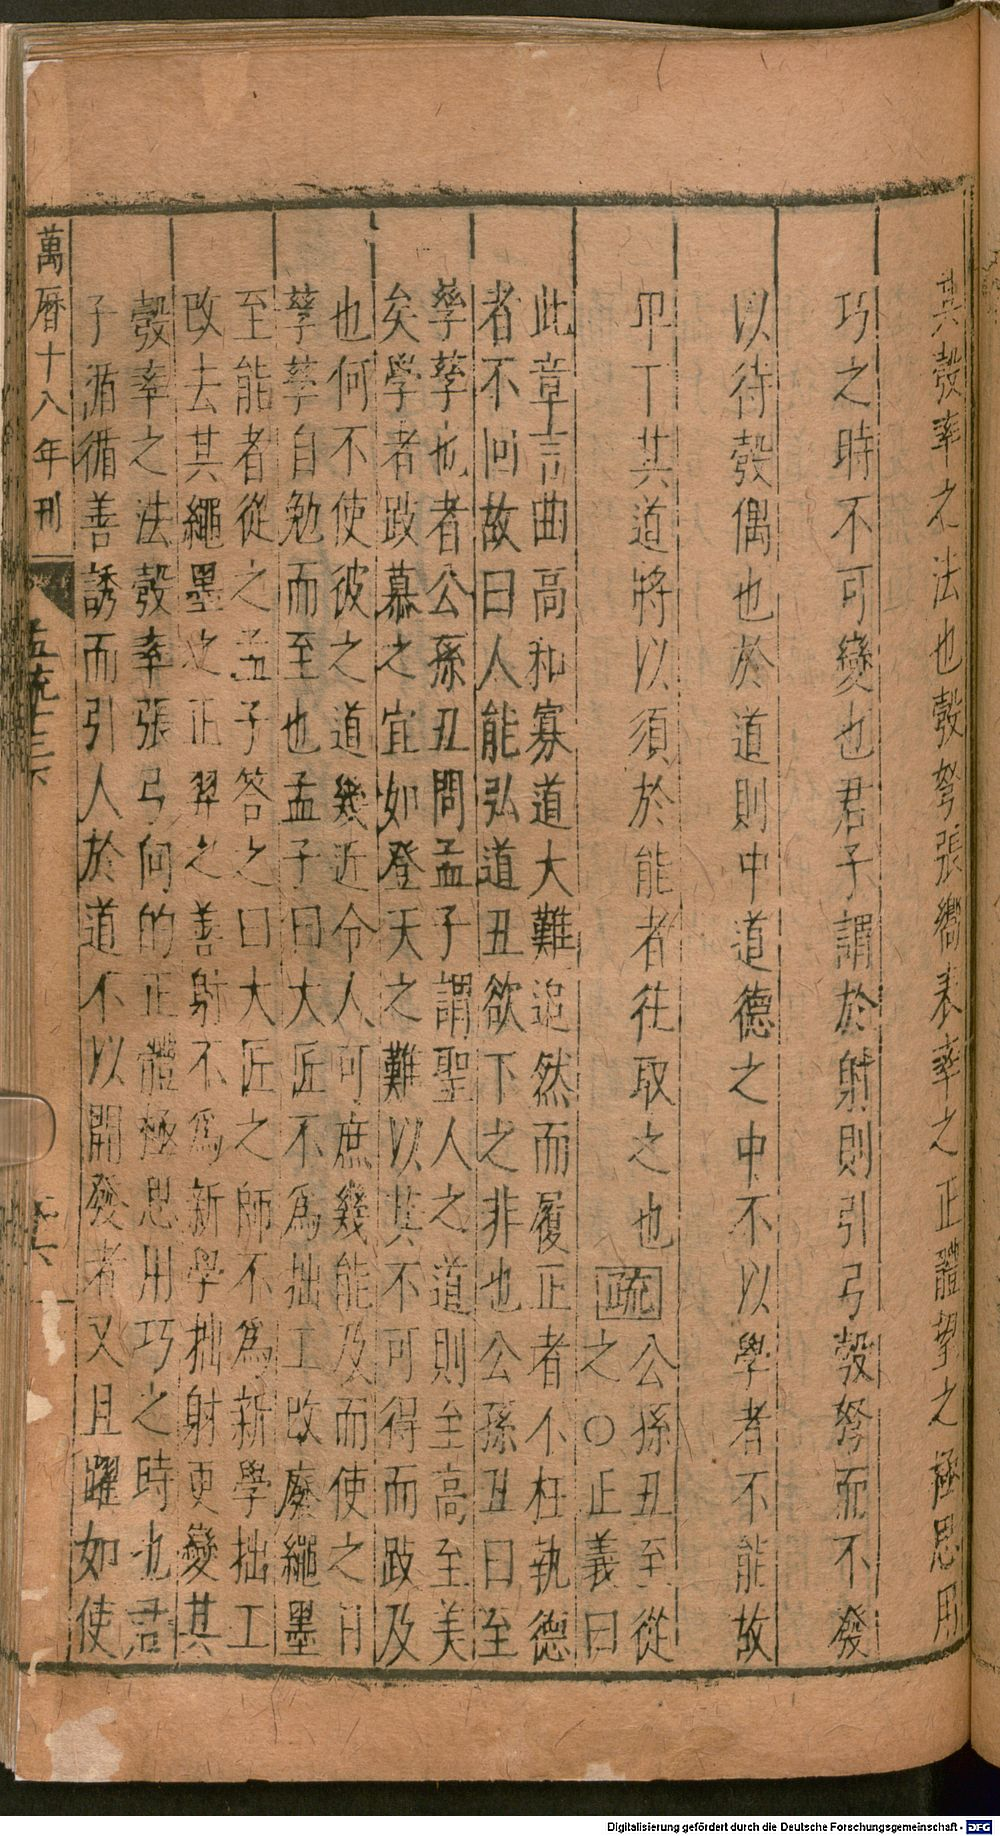 其彀率之法也彀弩張嚮表率之正體望之極思用
巧之時不可變也君子謂於射則引弓彀弩而不發
以待彀偶也於道則中道德之中不以學者不能故
卬下其道將以須於能者往取之也疏公孫丑至從
之○正義曰
此章言曲高和寡道大難追然而履正者不枉執德
者不回故曰人能弘道丑欲下之非也公孫丑曰至
孳孳也者公孫丑問孟子謂聖人之道則至高至美
矣學者跂慕之宜如登天之難以其不可得而跂及
也何不使彼之道幾近令人可庶幾能及而使之日
孳孳自勉而至也孟子曰大匠不爲拙工改廢繩墨
至能者從之孟子答之曰大匠之師不爲新學拙工
改去其繩墨之正羿之善射不爲新學拙射更變其
彀率之法彀率張弓向的正體極思用巧之時也君
子循循善誘而引人於道不以開發者又且躍如使
萬曆十八年刊
孟疏十三下
Digitalisierung gefördert durch die Deutsche Forschungsgemeinschaft - DFG